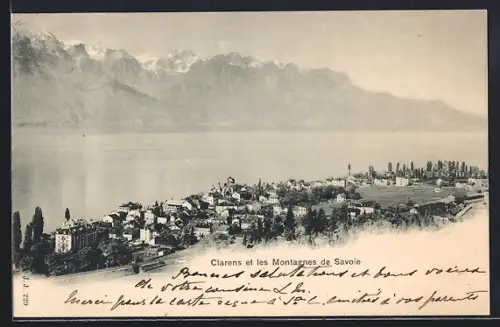 Clarens et les Montagnes de Savoie
Bonnes salutations et bons voeux
de votre cousine
Merci pour la carte reçue à St. amitiés à vos parents
J. J. 779